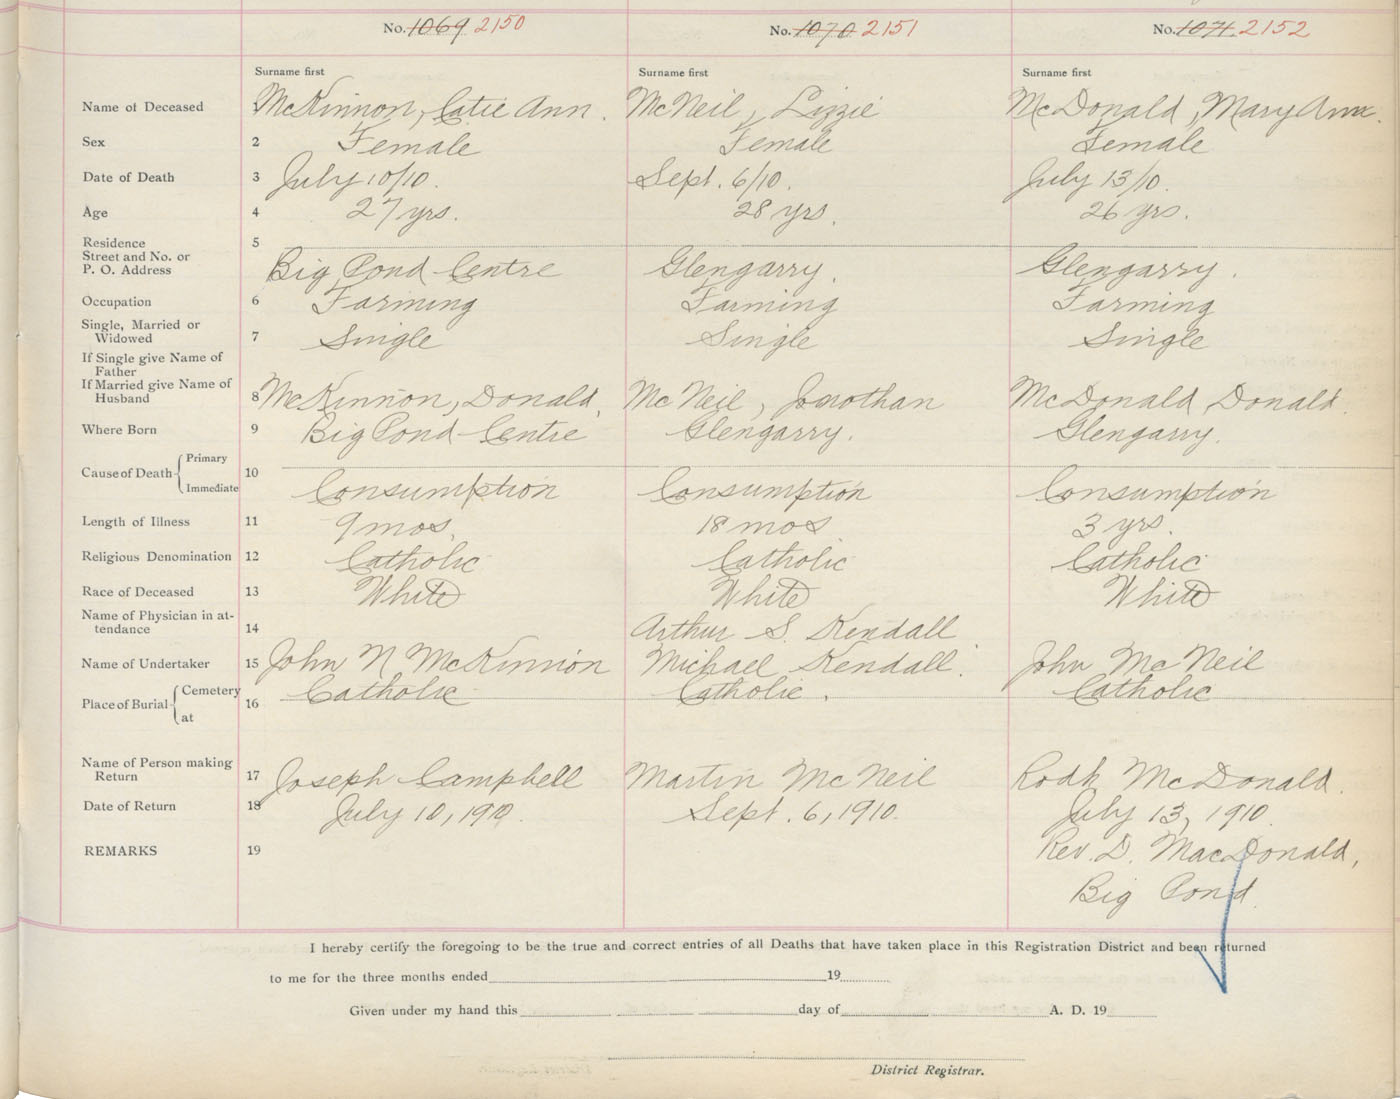 No. 1069 2150 No. 1070 2151 No. 1071. 2152
Surname first Surname first Surname first
Name of Deceased 1 McKinnon, Catie Ann. McNeil, Lizzie McDonald, Mary Ann.
Sex 2 Female Female Female
Date of Death 3 July 10/10. Sept. 6/10. July 13/10.
Age 4 27 yrs. 28 yrs. 26 yrs.
Residence 5
Street and No. or
P. O. Address Big Pond Centre Glengarry. Glengarry.
Occupation 6 Farming Farming Farming
Single, Married or
Widowed 7 Single Single Single
If Single give Name of
Father
If Married give Name of
Husband 8 McKinnon, Donald, McNeil, Jonothan McDonald Donald.
Where Born 9 Big Pond Centre Glengarry. Glengarry.
Cause of Death { Primary
10
Immediate Consumption Consumption Consumption
Length of Illness 11 9 mos. 18 mos 3 yrs.
Religious Denomination 12 Catholic Catholic Catholic
Race of Deceased 13 White White White
Name of Physician in at-
tendance 14 Arthur S. Kendall
Name of Undertaker 15 John N McKinnon Michael Kendall. John McNeil
Place of Burial { Cemetery Catholic Catholic. Catholic
16
at
Name of Person making
Return 17 Joseph Campbell Martin McNeil Rodk McDonald.
Date of Return 18 July 10, 1910. Sept. 6, 1910. July 13, 1910.
REMARKS 19 Rev. D. MacDonald,
Big Pond.
I hereby certify the foregoing to be the true and correct entries of all Deaths that have taken place in this Registration District and been returned
to me for the three months ended 19
Given under my hand this day of A. D. 19
District Registrar.